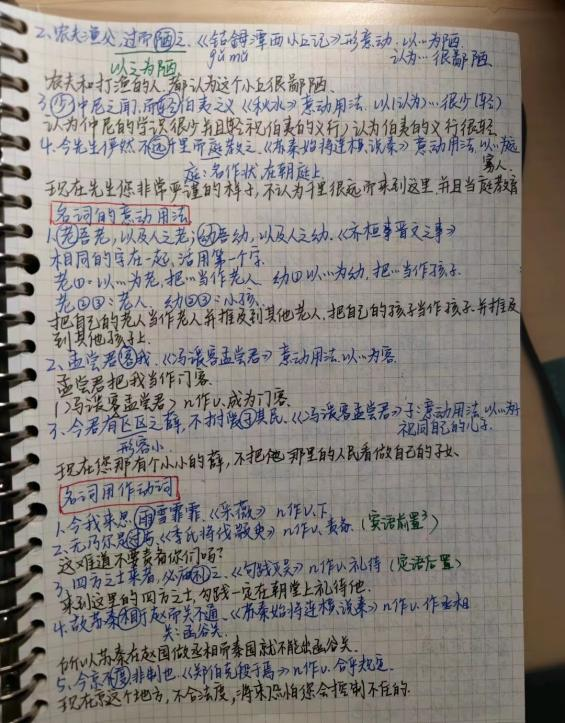 2、农夫渔父,过而陋之。《钴鉧潭西小丘记》形意动:以…为陋
以之为陋 gǔ mǔ 认为…很鄙陋
农夫和打渔的人,都认为这个小丘很鄙陋.
3、少仲尼之闻,而轻伯夷之义《秋水》意动用法.以(认为)…很少(轻)
认为仲尼的学识很少并且轻视伯夷的义行)认为伯夷的义行很轻
4、今先生俨然不远千里而庭教之.《苏秦始将连横说秦》意动用法.以…为远
庭:名作状,在朝庭上 寡人
现在先生您非常严谨的样子,不认为千里很远而来到这里并且当庭教育
名词的意动用法
1、老吾老,以及人之老;幼吾幼,以及人之幼.《齐桓晋文之事》
相同的字在一起,活用第一个字.
老①:以…为老,把…当作老人 幼①:以…为幼,把…当作孩子.
老②③:老人. 幼②③:小孩.
把自己的老人当作老人并推及到其他老人,把自己的孩子当作孩子并推及
到其他孩子上.
2、孟尝君客我.《冯谖客孟尝君》意动用法.以…为客.
孟尝君把我当作门客.
《冯谖客孟尝君》n作v.成为门客.
3、今君有区区之薛,不拊爱子其民.《冯谖客孟尝君》子:意动用法.以…为子
形容小 视同自己的儿子.
现在您那有个小小的薛,不把他那里的人民看做自己的子女.
名词用作动词
1、今我来思,雨雪霏霏.《采薇》n作v.下.
2、无乃尔是过与《季氏将伐颛臾》n作v.责备.(宾语前置)
这难道不要责备你们吗?
3、四方之士来者,必庙礼之.《勾践灭吴》n作v.礼待(定语后置)
来到这里的四方之士,勾践一定在朝堂上礼待他.
4、故苏秦相于赵而关不通.《苏秦始将连横说秦》n作v.作丞相
关:函谷关.
所以苏秦在赵国做丞相而秦国就不能出函谷关.
5、今京不度,非制也.《郑伯克段于鄢》n作v.合乎规定.
现在京这个地方,不合法度,将来恐怕您会控制不住的.